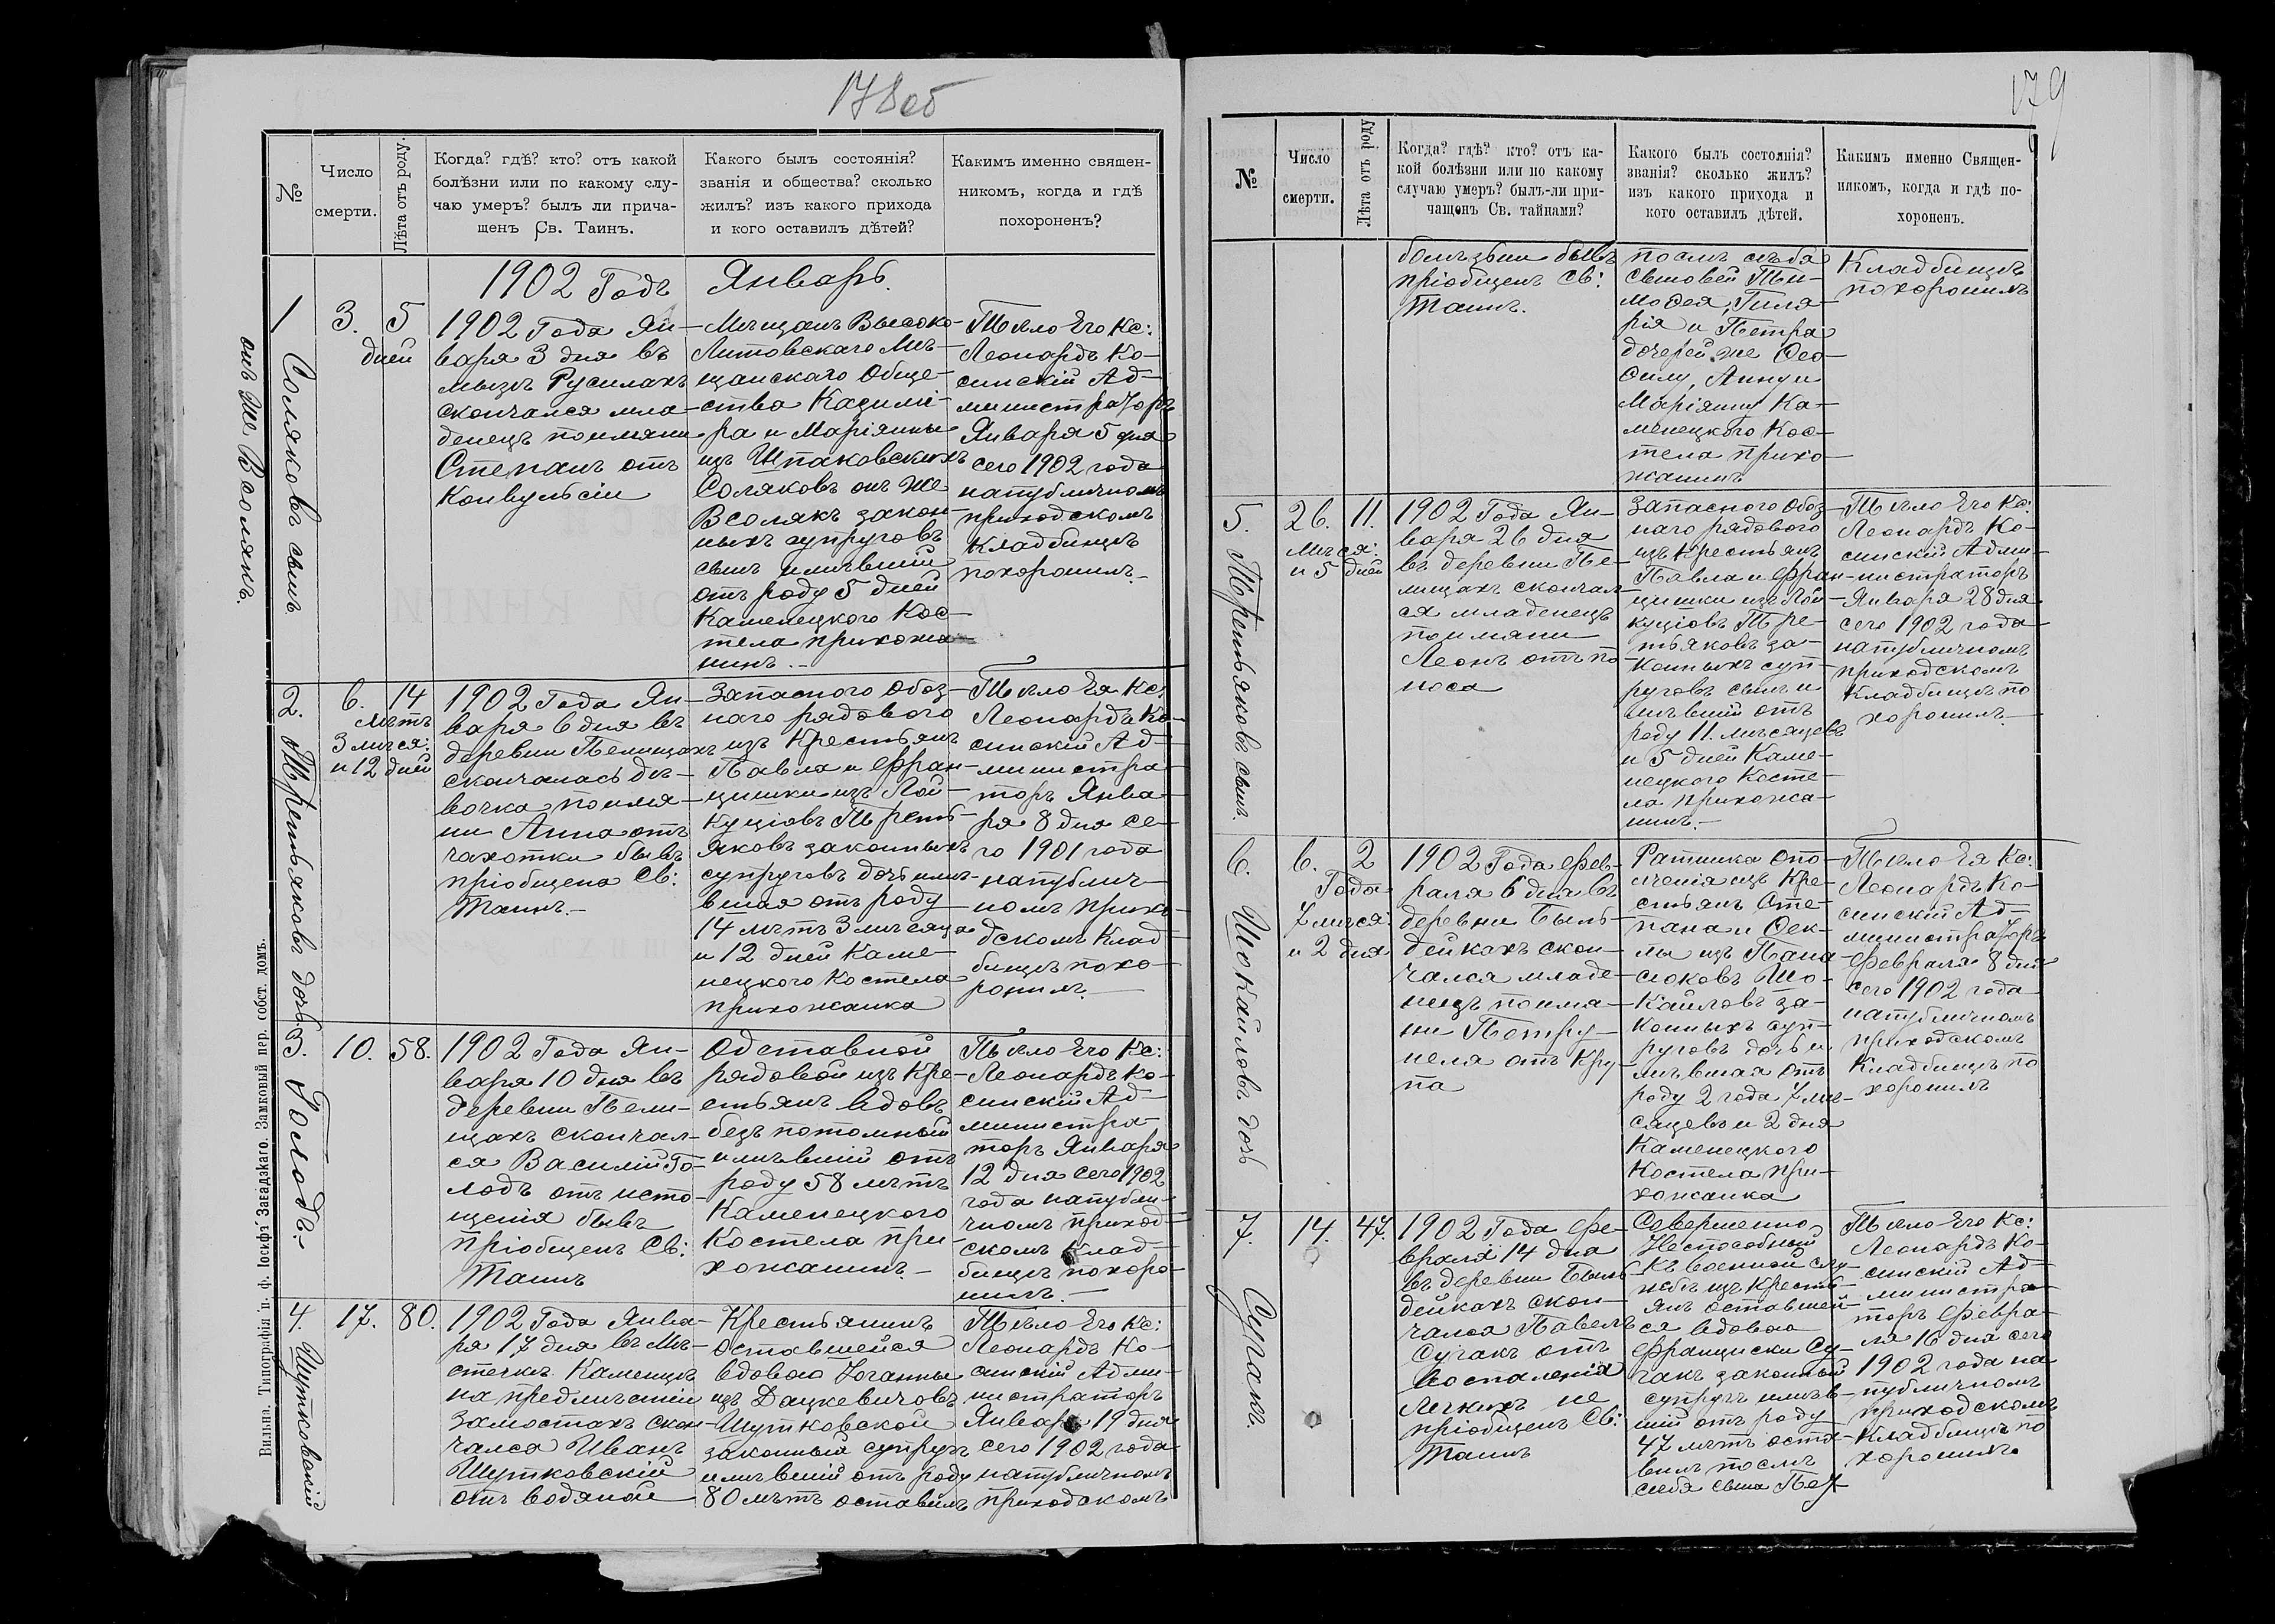 178 об
№
Число
смерти.
Лѣта отъ роду.
Когда? гдѣ? кто? отъ какой
болѣзни или по какому слу-
чаю умеръ? былъ ли прича-
щенъ Св. Таинъ.
Какого былъ состоянія?
званія и общества? сколько
жилъ? изъ какого прихода
и кого оставилъ дѣтей?
Какимъ именно священ-
никомъ, когда и гдѣ
похороненъ?
1902 Годъ Январь.
1
Соляковъ сынъ
онъ же Всолякъ.
3.
5
дней
1902 Года Ян-
варя 3 дня въ
мызѣ Русилахъ
скончался мла-
денецъ поимяни
Степанъ отъ
Конвульсіи
Мѣщанъ Высоко-
Литовскаго Мѣ-
щанскаго Обще-
ства Казими-
ра и Маріянны
изъ Шпаковскихъ
Соляковъ онъ же
Всолякъ закон-
ныхъ супруговъ
сынъ имѣвшій
отъ роду 5 дней
Каменецкого Кос-
тела прихожа-
нинъ.-
Тѣло Его Кс:
Леонардъ Ко-
синскій Ад-
министраторъ
Января 5 дня
сего 1902 года
напубличномъ
приходскомъ
Кладбищѣ
похоронилъ.
2.
Третьяковъ дочь
6.
14
лѣтъ
3 мѣся:
и 12 дней
1902 Года Ян-
варя 6 дня въ
деревни Пелищахъ
скончалась дѣ-
вочка поимя-
ни Анна отъ
чахотки бывъ
пріобщена Св:
Таинъ.-
Запасного Обоз-
наго рядового
изъ Крестьянъ
Павла и Фран-
цишки изъ Лой-
куціовъ Треть-
яковъ законныхъ
супруговъ дочь имѣ-
вшая отъ роду
14 лѣтъ 3 мѣсяца
и 12 дней Каме-
нецкого Костела
прихожанка
Тѣло Ея Кс:
Леонардъ Ко-
синскій Ад-
министра-
торъ Янва-
ря 8 дня се-
го 1901 года
напублич-
номъ прихо-
дскомъ Клад-
бищѣ похо-
ронилъ.
3.
Голодъ.-
10.
58.
1902 Года Ян-
варя 10 дня въ
деревни Пели-
щахъ скончал-
ся Василій Го-
лодъ отъ исто-
щенія бывъ
пріобщенъ Св:
Таинъ
Одставной
рядовой изъ Кре-
стьянъ вдовъ
безъ потомный
имѣвшій отъ
роду 58 лѣтъ
Каменецкого
Костела при-
хожанинъ.-
Тѣло Его Кс:
Леонардъ Ко-
синскій Ад-
министра-
торъ Января
12 дня сего 1902
года напубли-
чномъ приход-
скомъ Клад-
бищѣ похоро-
нилъ.-
4.
Шутковскій
17.
80.
1902 Года Янва-
ря 17 дня въ Мѣ-
стечкѣ Каменцѣ
на предмѣстіи
Замостахъ скон-
чался Иванъ
Шутковскій
отъ водяной
Крестьянинъ
Оставшейся
вдовою Іоганны
изъ Дацкевичовъ
Шутковской
законный супругъ
имѣвшій отъ роду
80 лѣтъ оставилъ
Тѣло Его Кс:
Леонардъ Ко-
синскій Адми-
нистраторъ
Января 19 дня
сего 1902 года
напубличномъ
приходскомъ
Вильна. Типографія н. ф. Іосифа Завадзкаго. Замковый пер. собст. домъ.
179
№
Число
смерти.
Лѣта отъ роду
Когда? гдѣ? кто? отъ ка-
кой болѣзни или по какому
случаю умеръ? былъ-ли при-
чащенъ Св. тайнами?
Какого былъ состоянія?
званія? сколько жилъ?
изъ какого прихода и
кого оставилъ дѣтей.
Какимъ именно Священ-
никомъ, когда и гдѣ по-
хороненъ.
болѣзни бывъ
пріобщенъ Св:
Таинъ.
послѣ себя
сыновей Ти-
мофея, Гиля-
рія и Петра
дочерей же Фео-
филу, Анну и
Маріянну Ка-
менецкого Кос-
тела прихо-
жанинъ
Кладбищѣ
похоронилъ
5.
Третьяковъ сынъ.
26.
11.
мѣся:
и 5 дней
1902 Года Ян-
варя 26 дня
въ деревни Пе-
лищахъ скончал-
ся младенецъ
поимяни
Леонъ отъ по-
носа
Запасного Обоз-
наго рядового
изъ Крестьянъ
Павла и Фран-
цишки изъ Лой-
куціовъ Тре-
тьяковъ за-
конныхъ суп-
руговъ сынъ и-
мѣвшій отъ
роду 11. мѣсяцевъ
и 5 дней Каме-
нецкого Косте-
ла прихожа-
нинъ.-
Тѣло Его Кс:
Леонардъ Ко-
синскій Адми-
нистраторъ
Января 28 дня
сего 1902 года
напубличномъ
приходскомъ
Кладбищѣ по
хоронилъ.-
6.
Шокайловъ дочь
6.
2
Года
7 мѣся:
и 2 дня
1902 Года Фев-
раля 6 дня въ
деревни Быль-
дейкахъ скон-
чался младе-
нецъ поимя-
ни Петру-
неля отъ Кру-
па
Ратника Опо-
лченія изъ Кре-
стьянъ Сте-
пана и Фек-
лы изъ Пана-
сюковъ Шо-
кайловъ за-
конныхъ суп-
руговъ дочь и-
мѣвшая отъ
роду 2 года 7 мѣ-
сяцевъ и 2 дня
Каменецкого
Костела при-
хожанка
Тѣло Ея Кс:
Леонардъ Ко-
синскій Ад-
министраторъ
Февраля 8 дня
сего 1902 года
напубличномъ
приходскомъ
Кладбищѣ по
хоронилъ
7.
Сугакъ.
14.
47.
1902 Года Фе-
враля 14 дня
въ деревни Быль-
дейкахъ скон-
чался Павелъ
Сугакъ отъ
воспаленія
Легкихъ не
пріобщенъ Св:
Таинъ
Совершенно
Неспособный
Къ военной слу-
жбѣ изъ Кресть-
янъ оставшей-
ся вдовою
Франциски Су-
гакъ законный
супругъ имѣв-
шій отъ роду
47 лѣтъ оста-
вилъ послѣ
себя сына Пет
Тѣло Его Кс:
Леонардъ Ко-
синскій Ад-
министра-
торъ Февра-
ля 16 дня сего
1902 года на
публичномъ
приходскомъ
Кладбищѣ по
хоронилъ.